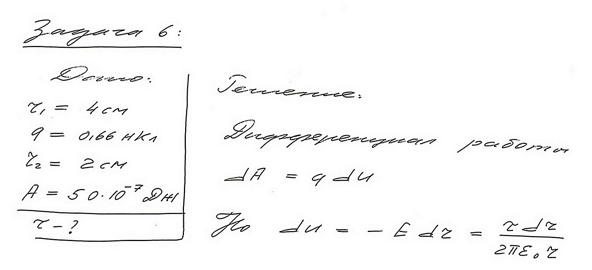 Задача 6:
Дано:
r₁ = 4 см
q = 0,66 нКл
r₂ = 2 см
A = 50·10⁻⁷ Дж
τ - ?
Решение:
Дифференциал работы
dA = q dU
Но dU = - E dr = τ dr / 2πε₀r